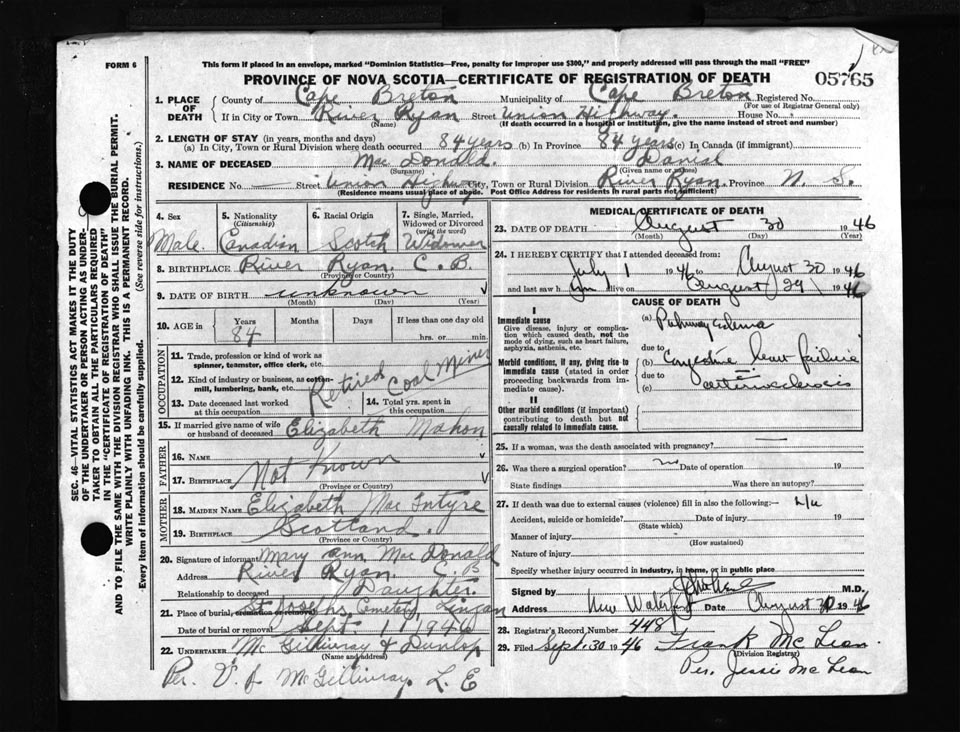 FORM 6
This form if placed in an envelope, marked "Dominion Statistics—Free, penalty for improper use $300," and properly addressed will pass through the mail "FREE"
PROVINCE OF NOVA SCOTIA—CERTIFICATE OF REGISTRATION OF DEATH 05765
SEC. 46—VITAL STATISTICS ACT MAKES IT THE DUTY
OF THE UNDERTAKER OR PERSON ACTING AS UNDER-
TAKER TO OBTAIN ALL THE PARTICULARS REQUIRED
IN THE "CERTIFICATE OF REGISTRATION OF DEATH" AND
TO FILE THE SAME WITH THE DIVISION REGISTRAR WHO SHALL ISSUE THE BURIAL PERMIT.
WRITE PLAINLY WITH UNFADING INK. THIS IS A PERMANENT RECORD.
Every item of information should be carefully supplied. (See reverse side for instructions.)
1. PLACE OF DEATH County of Cape Breton Municipality of Cape Breton Registered No.
(For use of Registrar General only)
If in City or Town River Ryan Street Union Highway House No.
(Name) (If death occurred in a hospital or institution, give the name instead of street and number)
2. LENGTH OF STAY (in years, months and days)
(a) In City, Town or Rural Division where death occurred 84 years (b) In Province 84 years (c) In Canada (if immigrant)
3. NAME OF DECEASED Mac Donald Danial
(Surname) (Given name or names)
RESIDENCE No. Street Union Highway City, Town or Rural Division River Ryan Province N. S.
(Residence means usual place of abode. Post Office Address for residents in rural parts not sufficient)
4. Sex 5. Nationality (Citizenship) 6. Racial Origin 7. Single, Married, Widowed or Divorced (write the word)
Male Canadian Scotch Widower
8. BIRTHPLACE River Ryan C. B.
(Province or Country)
9. DATE OF BIRTH unknown
(Month) (Day) (Year)
10. AGE in Years Months Days If less than one day old
84 hrs. or min.
OCCUPATION
11. Trade, profession or kind of work as spinner, teamster, office clerk, etc. Retired Coal Miner
12. Kind of industry or business, as cotton-mill, lumbering, bank, etc.
13. Date deceased last worked at this occupation 14. Total yrs. spent in this occupation
15. If married give name of wife or husband of deceased Elizabeth Mahon
FATHER
16. NAME
17. BIRTHPLACE Not Known
(Province or Country)
MOTHER
18. MAIDEN NAME Elizabeth Mac Intyre
19. BIRTHPLACE Scotland
(Province or Country)
20. Signature of informant Mary Ann Mac Donald
Address River Ryan. C. B
Relationship to deceased Daughter
21. Place of burial, cremation or removal St. Josephs Cemetery Lingan
Date of burial or removal Sept. 1 1946
22. UNDERTAKER Mc Gillivray & Dunlop
(Name and address)
Per. V. J. McGillivray L. E
MEDICAL CERTIFICATE OF DEATH
23. DATE OF DEATH August 30 1946
(Month) (Day) (Year)
24. I HEREBY CERTIFY that I attended deceased from:
July 1 1946 to August 30 1946
and last saw him alive on August 29 1946
CAUSE OF DEATH
I
Immediate cause
Give disease, injury or complication which caused death, not the mode of dying, such as heart failure, asphyxia, asthenia, etc.
(a) Pulmonary edema
due to
Morbid conditions, if any, giving rise to immediate cause (stated in order proceeding backwards from immediate cause)
(b) Congestive heart failure
due to
(c) arteriosclerosis
II
Other morbid conditions (if important) contributing to death but not causally related to immediate cause.
25. If a woman, was the death associated with pregnancy?
26. Was there a surgical operation? no Date of operation 19
State findings Was there an autopsy?
27. If death was due to external causes (violence) fill in also the following:
Accident, suicide or homicide? Date of injury 19
(State which)
Manner of injury
(How sustained)
Nature of injury
Specify whether injury occurred in industry, in home, or in public place
Signed by M.D.
Address New Waterford Date August 30 1946
28. Registrar's Record Number 448
29. Filed Sept. 30 1946 Frank Mc Lean
(Division Registrar)
Per. Jessie Mc Lean